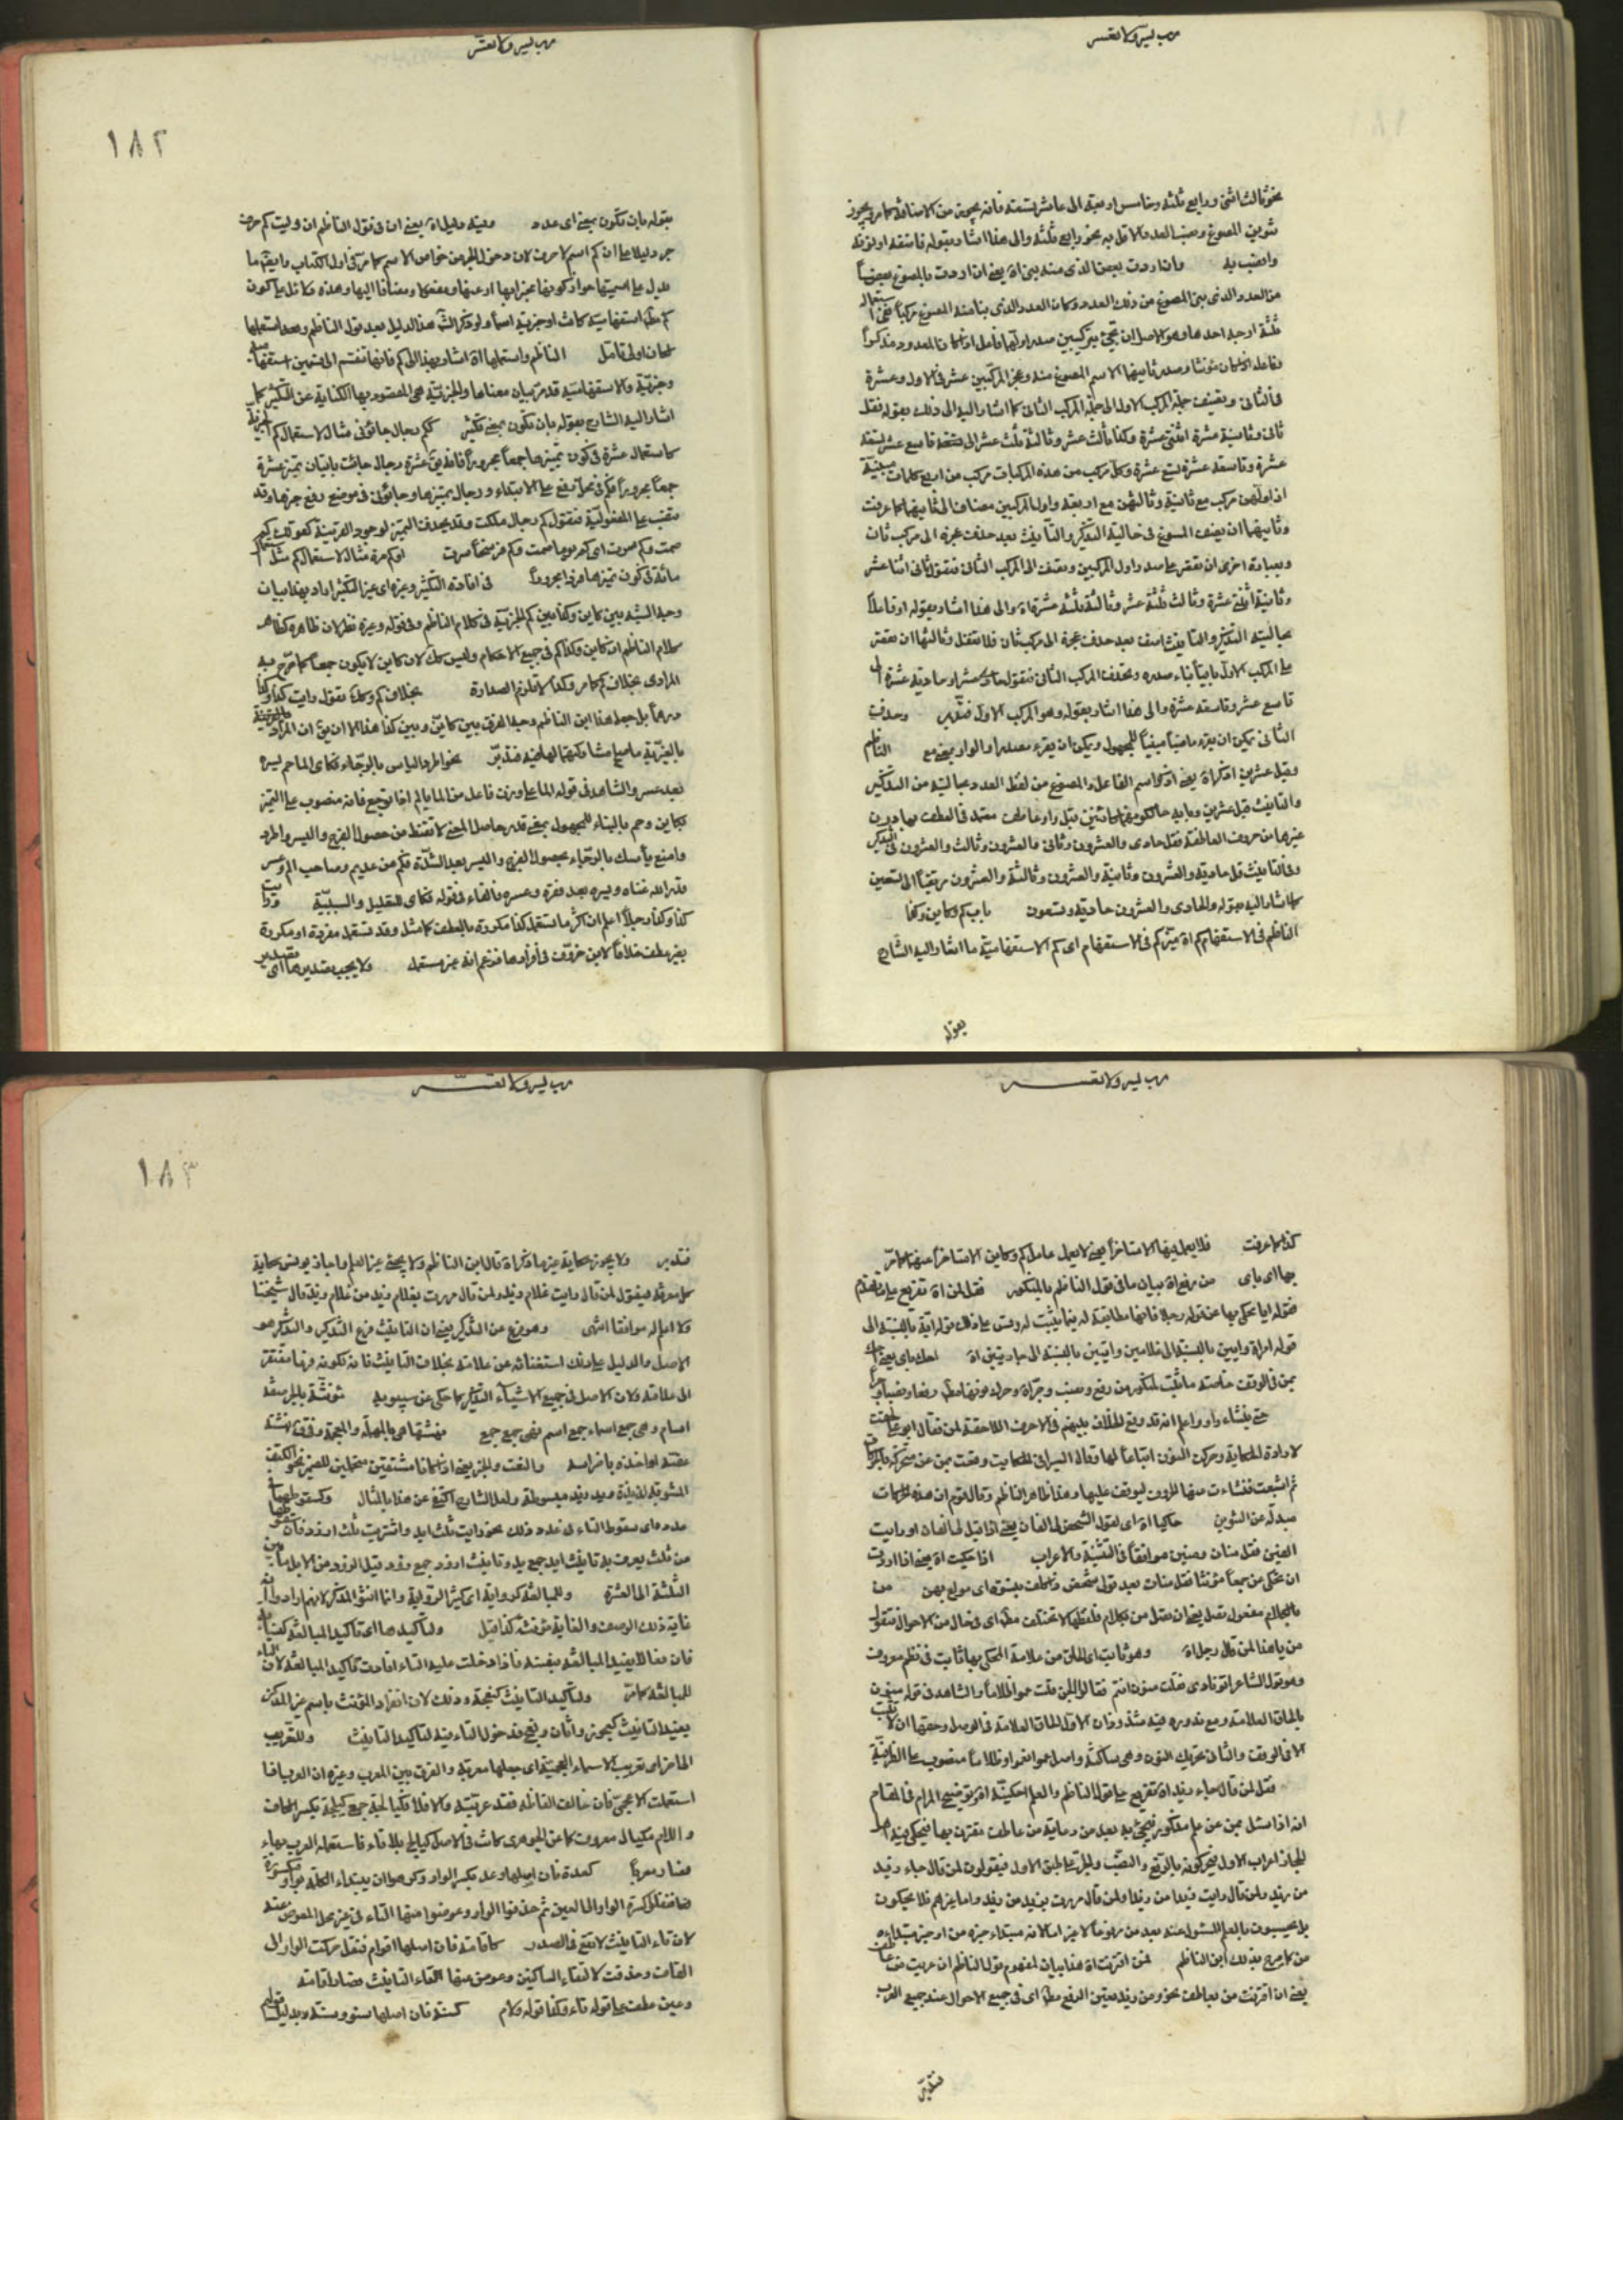 رب يسر ولا تعسر
نحو ثالث اثنين ورابع ثلثة وخامس اربعة الى عاشر تسعة فانه يجوز من الاضافة كما مر ويجوز
تنوين المصوغ ونصب العدد الاقل به نحو رابع ثلثة والى هذا اشار بقوله فاضفه او نونه
وانصب به وان اردت بعض الذى منه بنى اه يعنى ان اردت بالمصوغ بعضاً
من العدد الذى بنى المصوغ من ذلك العدد وكان العدد الذى بنا منه المصوغ مركبا ففى استعماله
ثلثة اوجه احدها وهو الاصل ان تجئ بتركيبين صدر اولهما فاعل اذا كان المعدود مذكراً
وفاعلة اذا كان مؤنثا وصدر ثانيهما الاسم المصوغ منه وعجز المركبين عشر فى الاول وعشرة
فى الثانى وتضيف جملة المركب الاول الى جملة المركب الثانى كما اشار اليه الى ذلك بقوله فقل
ثانى وثانية عشرة اثنتى عشرة وكذا ثالث عشر وثالثة ثلث عشر الى تسعة تاسع عشر تسعة
عشرة وتاسعة عشرة تسع عشرة وكل مركب من هذه المركبات مركب من اربع كلمات مبنية
اذ اولهن مركب مع ثانية وثالثهن مع اربعة واول المركبين مضاف الى ثانيهما كما عرفت
وثانيهما ان يضيف المصوغ فى حالتيه التذكير والتأنيث بعد حذف عجزه الى مركب ثان
وبعبارة اخرى ان تقتصر على صدر اول المركبين وتضيف الى المركب الثانى فتقول ثانى اثنا عشر
وثانية اثنتى عشرة وثالث ثلثة عشر وثالثة ثلثة عشرة اه والى هذا اشار بقوله او فاعلاً
بحالتيه التذكير والتأنيث اضف بعد حذف عجزه الى مركب ثان فلا تغفل وثالثها ان تقتصر
على المركب الاول باقياً بناء صدره وتحذف المركب الثانى فتقول حادى عشر وحادية عشرة الى
تاسع عشر وتاسعة عشرة والى هذا اشار بقوله وهو المركب الاول وحذف
الثانى يمكن ان يقرء ماضياً مبنياً للمجهول ويمكن ان يقرء مصدرا والواو بمعنى مع الناظم
وقبل عشرين اذكراه يعنى اذكر اسم الفاعل والمصوغ من لفظ العدد بحالتيه من التذكير
والتأنيث قبل عشرين وبابه حالكونهما كائنين قبل واو عاطفة معتمد فى العطف بها دون
غيرها من حروف العاطفة فقل حادى والعشرون وثانى والعشرون وثالث والعشرون فى التذكير
وفى التأنيث قل حادية والعشرون وثانية والعشرون وثالثة والعشرون مرتقياً الى تسعين
كما اشار اليه بقوله والحادى والعشرون حادية وتسعون باب كم وكاين وكذا
الناظم فى الاستفهام كم اه ميز كم فى الاستفهام اى كم الاستفهامية ما اشار اليه الشارح
بقوله
رب يسر ولا تعسر
١٨٢
بقوله بان تكون بمعنى اى عدد وفيه دليل اه يعنى ان فى قول الناظم ان وليت كم حرف
جر دليلا على ان كم اسم لا حرف لان دخول الجر من خواص الاسم كما مر فى اول الكتاب وايضا ما
يدل على اسميتها جواز كونها مجرا بها او عنها ومفعولا ومضافا اليها وهذه دلائل على كون
كم مطلقا استفهامية كانت او خبرية اسماً ولو ذكر الشارح هذا الدليل بعد قول الناظم وبعد استعملها
لكان اولى تامل الناظم واستعملها اه اشار بهذا الى كم فانها تنقسم الى قسمين استفهامية
وخبرية والاستفهامية قد مر بيان معناها والخبرية هى المقصود بها الكناية عن التكثير كما
اشار اليه الشارح بقوله بان تكون بمعنى تكثير ككم رجال جائونى مثال لاستعمال كم الخبرية
كاستعمال عشرة فى كون تميزها جمعاً مجروراً فانه يقال عشرة رجال جائت باتيان تميز عشرة
جمعاً مجروراً فكم فى محل رفع على الابتداء ورجال تميزها وجائونى فى موضع رفع خبرها وقد
تنصب على المفعولية فتقول كم رجال ملكت وقد يحذف التميز لوجود القرينة كقولك كم
صمت وكم سرت اى كم يوما صمت وكم فرسخاً سرت او كم مرة مثال لاستعمال كم مثل استعمال
مائة فى كون تميزها مفردا مجروراً فى افادة التكثير وغيره اى غير التكثير اراد بهذا بيان
وجه الشبه بين كاين وكذا بين كم الخبرية فى كلام الناظم وفى قوله وغيره نظر لان ظاهره كظاهر
كلام الناظم ان كاين وكذا ككم فى جميع الاحكام وليس كذلك لان كاين لا يكون جمعاً كما صرح به
المرادى بخلاف كم كما مر وكذا لا تلزم الصدارة بخلاف كم وكاين تقول رايت كذا وكذا
درهماً بل جعل هذا ابن الناظم وجه الفرق بين كاين وبين كذا هذا الا ان يق ان المراد
بالغيرية ما يصح مشاركتهما لها فيه فتدبر نحو اطرد الياس بالرجاء فكاى الما حم يسره
بعد عسر والشاهد فى قوله الما على وزن فاعل من الم يالم اذا توجع فانه منصوب على التميز
لكاين وحم بالبناء للمجهول بمعنى قدر حاصل المعنى لا تقنط من حصول الفرج واليسر واطرد
وامنع ياسك بالرجاء بحصول الفرج واليسر بعد الشدة فكم من عديم وصاحب الم وعسر
قدر الله غناه ويسره بعد فقره وعسره والفاء فى قوله فكاى للتعليل والسببية ورايت
كذا وكذا رجلاً اعلم ان اكثر ما تستعمل كذا مكررة بالعطف كما مثل وقد تستعمل مفردة او مكررة
بغير عطف خلافا لابن خروف فى افرادها فزعم انه غير مستعمل ولا يجب تصديرها اى تصدير
رب يسر ولا تعسر
كذا كما عرفت فلا يعمل فيها الا متاخراً يعنى لا يعمل عامل كم وكاين الا متاخراً عنهما كما مر
بها اى باى من رفع اه بيان ما فى قول الناظم بالمنكور فقل لمن اه تفريع على ما تقدم
فقوله ايا يحكى بها عن قوله رجلا فانها مطابقة له فيما يثبت له وقس على ذلك قوله اية بالنسبة الى
قوله امراة وايين بالنسبة الى غلامين وايتين بالنسبة الى جاريتين اه احك باى يعنى احك
بمن فى الوقف خاصة ما ثبت لمنكور من رفع ونصب وجر اه وحرك نونها مطلقا رفعا ونصبا وجراً
حتى ينشاء واو واعلم انه قد وقع الخلاف بينهم فى الاحرف اللاحقة لمن فقال ابو على لحقت
لارادة الحكاية وحركت النون اتباعاً لها وقال السيرافى الحكايت وقعت بمن عن متحركة بالحركات
ثم اشبعت فنشاءت منها الحروف ليوقف عليها وهذا ظاهر الناظم وقال قوم ان هذه الحركات
مبدلة عن التنوين حاكيا اه اى لقول الشخص لى الفان يعنى اذا قيل لى الفان او رايت
الفين فقل منان ومنين موافقاً فى التثنية والاعراب اذا حكيت اه يعنى اذا اردت
ان تحكى من جمعاً مؤنثا فقل منات بعد قول شخص ذا كلف بنسوة اى مولع بهن من
بالكلام مفعول تصل يعنى ان تصل من بكلام فلفظها لا تختلف مطلقا اى فى حال من الاحوال فتقول
من يا هذا لمن قال رجل اه وهو ثابت اى الحاق من علامة المحكى بها ثابت فى نظم معروف
وهو قول الشاعر اتو نارى فقلت منون انتم فقالوا الجن قلت عموا ظلاماً والشاهد فى قوله منون
بالحاق العلامة ومع ندوره فيه شذوذان الاول الحاق العلامة فى الوصل وحقها ان لا تثبت
الا فى الوقف والثانى تحريك النون وهى ساكنة واصل عموا انعموا وظلاماً منصوب على الظرفية
فقل لمن قال جاء زيد اه تفريع على قول الناظم والعلم احكينه اه وتوضيح المرام فى المقام
انه اذا سئل بمن عن علم مذكور فيجئ به بعد من وعارية من عاطف مقترن بها فيحكى فيه اهل
الحجاز اعراب الاول فيحركونه بالرفع والنصب والجر على طبق الاول فيقولون لمن قال جاء زيد
من زيد ولمن قال رايت زيدا من زيدا ولمن قال مررت بزيد من زيد واما غيرهم فلا يحكون
بل يجيئون بالعلم المسئول عنه بعد من مرفوعاً لا غير اما لانه مبتداء خبره من او خبر مبتداءه
من كما صرح بذلك ابن الناظم لمن اقترنت اه هذا بيان لمفهوم قول الناظم ان عريت من عاطف
يعنى ان اقترنت من بعاطف نحو ومن زيد تعين الرفع مطلقا اى فى جميع الاحوال عند جميع العرب
فتدبر
رب يسر ولا تعسر
١٨٣
فتدبر ولا يجوز حكاية غيرها ذكر اه قال ابن الناظم ولا يحكى غير العلم واجاز يونس حكاية
كل معرفة فيقول لمن قال رايت غلام زيد ولمن قال مررت بغلام زيد من غلام زيد قال شيخنا
ولا اعلم له موافقا انتهى وهو فرع عن التذكير يعنى ان التانيث فرع التذكير والتذكير هو
الاصل والدليل على ذلك استغنائه عن علامة بخلاف التانيث فانه لكونه فرعا مفتقر
الى علامة ولان الاصل فى جميع الاشياء التذكير كما حكى عن سيبويه مؤنثة بالجر صفة
اسام وهى جمع اسماء جمع اسم فهى جمع جمع نهشتها هى بالمهملة والمعجمة وفرق
والنعت والخبر يعنى اذا كانا مشتقين متحملين للضمير نحو الكتف
المشوية لذيذة ويد زيد مبسوطة ولعل الشارح اكتفى عن هذا بالمثال وكسقوطها
عدده اى سقوط التاء فى عدد وذلك نحو رايت ثلث ايد واشتريت ثلث اذود فان سقوطها
من ثلث يعرف به تانيث ايد جمع يد وتانيث اذود جمع ذود قيل الذود من الابل ما بين
الثلثة الى العشرة وللمبالغة كرواية اى كثير الرواية وانما انثوا المذكر لانهم ارادوا انه
غاية ذلك الوصف والغاية مؤنثة كذا قيل ولتاكيدها اى تاكيد المبالغة كنسابة
فان فعالا يفيد المبالغة بنفسه فاذا دخلت عليه التاء افادت تاكيد المبالغة لان التاء
للمبالغة كما مر ولتاكيد التانيث كنعجة وذلك لان انفراد المؤنث باسم غير المذكر
يفيد التانيث كعجوز واتان ونعج فدخول التاء فيه لتاكيد التانيث وللتعريب
الى اخره اى تعريب الاسماء العجمية اى جعلها معربة والفرق بين المعرب وغيره ان العرب اذا
استعملت الاعجمى فان خالف الفاظه فقد عربته والا فلا فكيالجة جمع كيلجة بكسر الكاف
واللام مكيال معروف كما عن الجوهرى كانت فى الاصل كيالج بلا تاء فاستعمله العرب بهاء
فصار معرباً كعدة فان اصلها وعد بكسر الواو وكرهوا ان يبتداء الكلمة بواو مكسورة
فنقل كسرة الواو الى العين ثم حذفوا الواو وعوضوا منها التاء فى غير محل المعوض عنه
لان تاء التانيث لا تقع فى الصدر كاقامة فان اصلها اقوام فنقل حركت الواو الى
القاف وحذفت لالتقاء الساكنين وعوض عنها التاء التانيث فصار اقامة
وعين عطف على قوله فاء وكذا قوله ولام كسنة فان اصلها سنو او سنه بدليل